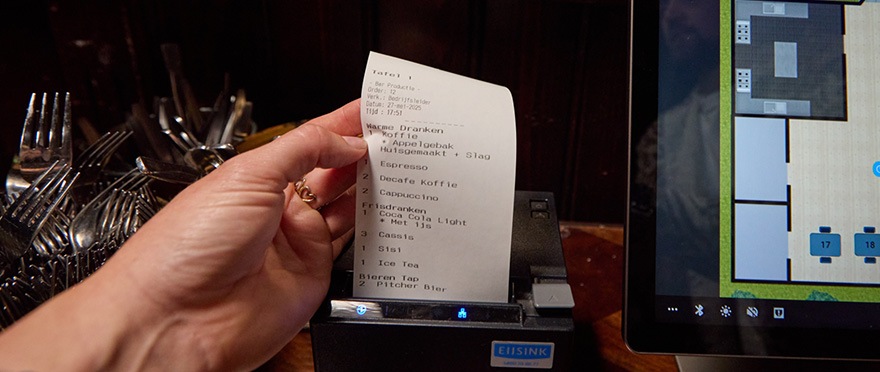 Tafel 1
- Bar Productie -
Order: 12
Verk.: Bedrijfsleider
Datum: 27-mei-2025
Tijd : 17:51
Warme Dranken
1 Koffie
* Appelgebak
Huisgemaakt + Slag
1 Espresso
2 Decafe Koffie
2 Cappuccino
Frisdranken
1 Coca Cola Light
* Met ijs
3 Cassis
1 Sisi
1 Ice Tea
Bieren Tap
2 Pitcher Bier
EIJSINK
17
18